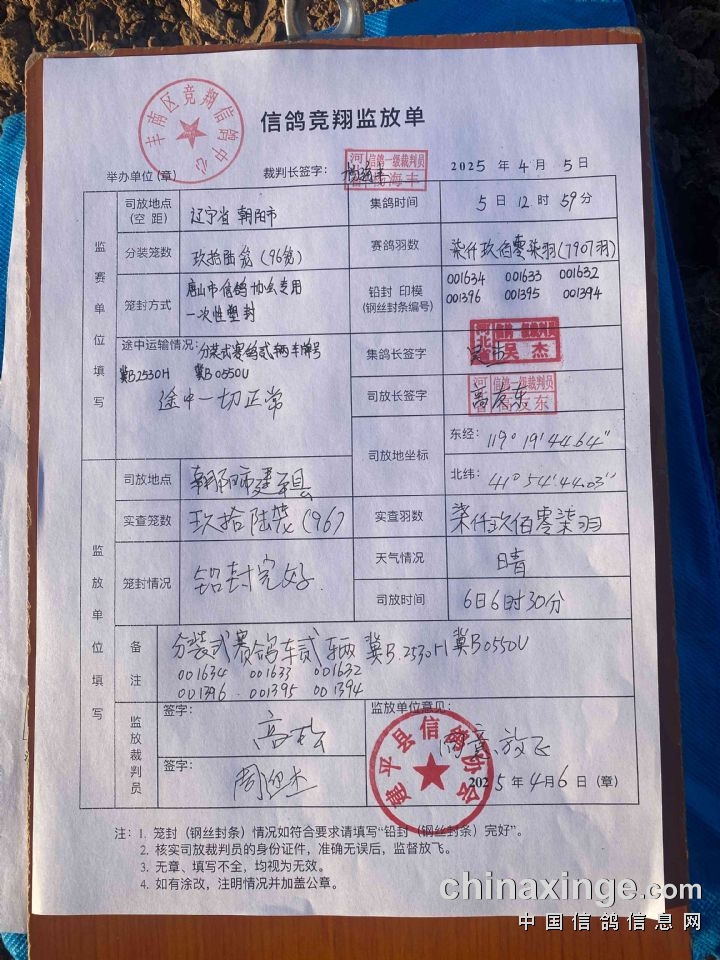 丰南区竞翔信鸽中心
信鸽竞翔监放单
举办单位（章）
裁判长签字：
信鸽一级裁判员
2025 年 4 月 5 日
监赛单位填写
司放地点（空 距）
辽宁省 朝阳市
集鸽时间
5 日 12 时 59 分
分装笼数
玖拾陆笼 (96笼)
赛鸽羽数
柒仟玖佰零柒羽(7907羽)
笼封方式
唐山市信鸽协会专用
一次性塑封
铅封 印模
(钢丝封条编号)
001634 001633 001632
001396 001395 001394
途中运输情况：分装式赛鸽式辆车牌号
冀B2530H 冀B0550U
途中一切正常
集鸽长签字
河北省
信鸽一级裁判员
吴杰
司放长签字
高友东
信鸽一级裁判员
司放地坐标
东经：119° 19′ 44.64″
北纬：41° 54′ 44.03″
监放单位填写
司放地点
朝阳市建平县
实查笼数
玖拾陆笼 (96)
实查羽数
柒仟玖佰零柒羽
笼封情况
铅封完好.
天气情况
晴
司放时间
6日6时30分
备注
分装式赛鸽车贰辆 冀B.2530H 冀B0550U
001634 001633 001632
001396 . 001395 001394
监放裁判员
签字：
签字：
监放单位意见：
同意放飞
建平县信鸽协会
2025 年 4 月 6 日（章）
注：1. 笼封（钢丝封条）情况如符合要求请填写“铅封（钢丝封条）完好”。
2. 核实司放裁判员的身份证件，准确无误后，监督放飞。
3. 无章、填写不全，均视为无效。
4. 如有涂改，注明情况并加盖公章。
chinaxinge.com
中国信鸽信息网